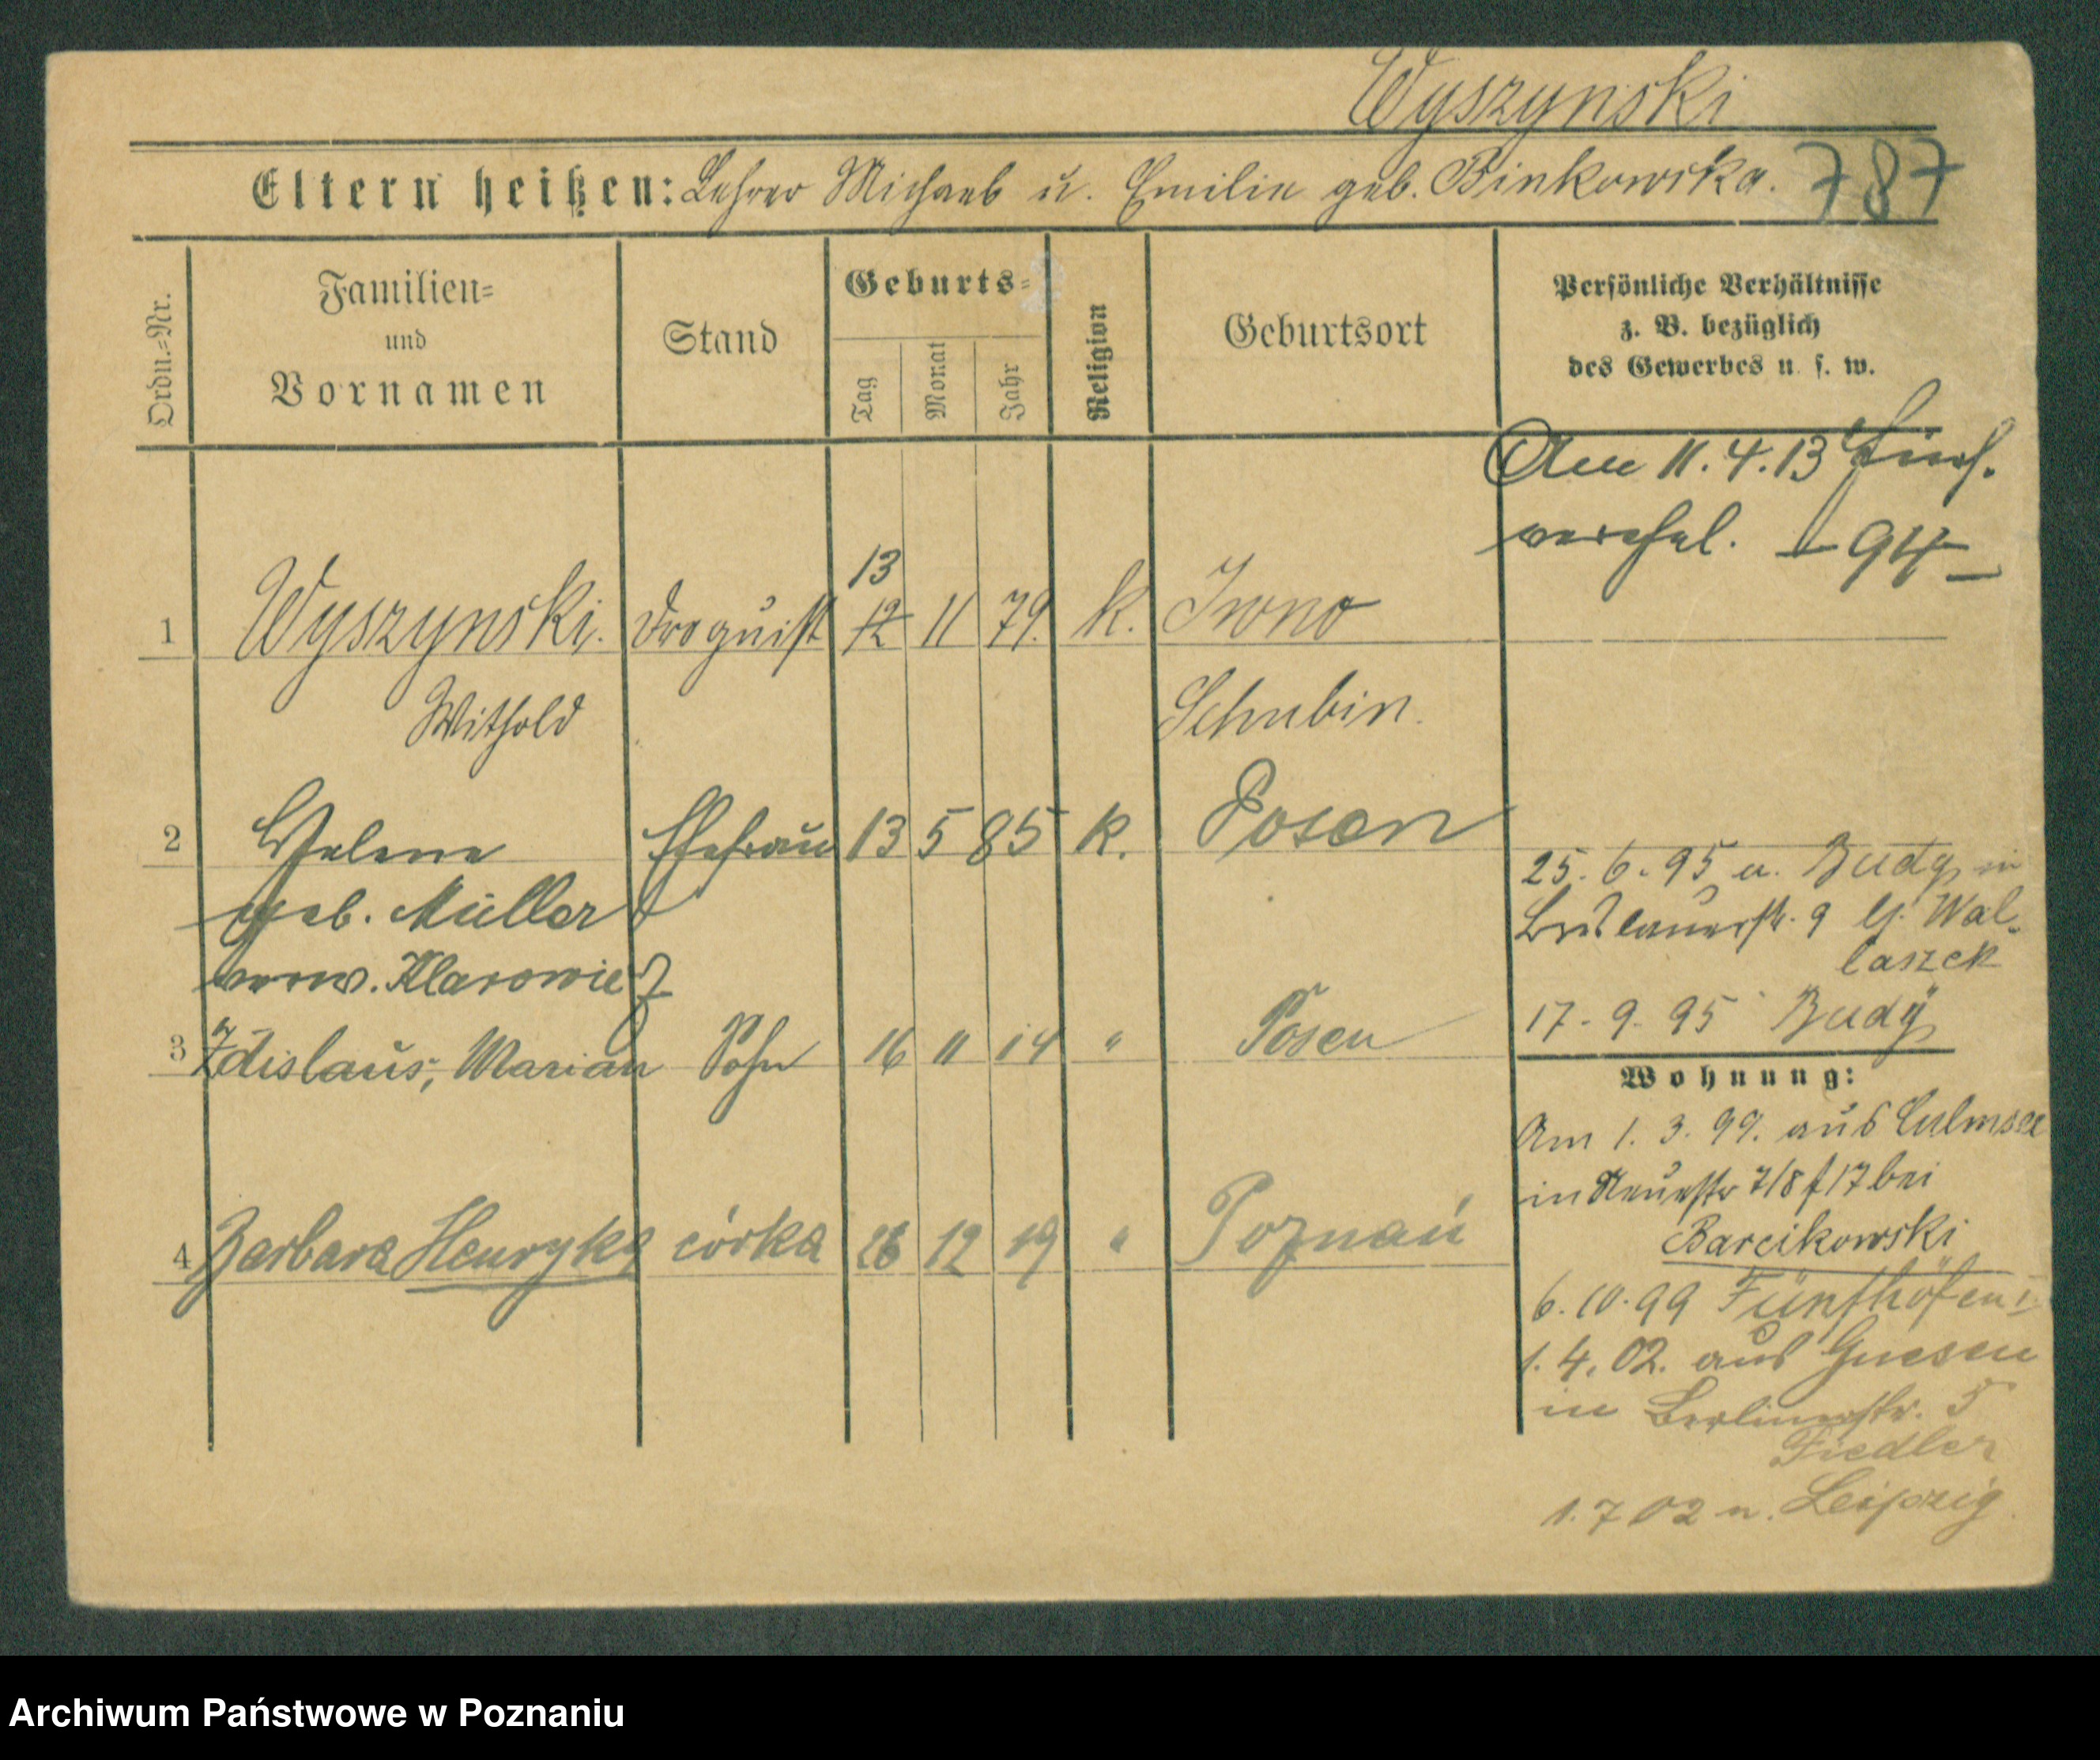 Wyszynski
Eltern heißen: Lehrer Michael u. Emilie geb. Binkowska. 787
Ordn.=Nr. Familien= und Vornamen Stand Geburts= Tag Monat Jahr Religion Geburtsort Persönliche Verhältnisse z. B. bezüglich des Gewerbes u. s. w.
Am 11.4.13
94
13
1 Wyszynski. Droguist 12 11 79. k. Iwno
Withold Schubin.
2 Helene Ehefrau 13 5 85 k. Posen
geb. Müller
verw. Klarowicz
25. 6. 95 a. Budy in
Breslauerstr. 9 b. Wal-
laszek
17. 9. 95 Budy
3 Zdislaus, Marian Sohn 16 11 14 " Posen
Wohnung:
Am 1. 3. 99. aus Culmsee
in Neuestr 7/8 f 17 bei
Barcikowski
4 Barbara Henryka córka 26 12 19 " Poznań
6. 10. 99 Fünfhöfen
1. 4. 02. aus Gnesen
in Berlinerstr. 5
Fiedler
1. 7 02 n. Leipzig
Archiwum Państwowe w Poznaniu